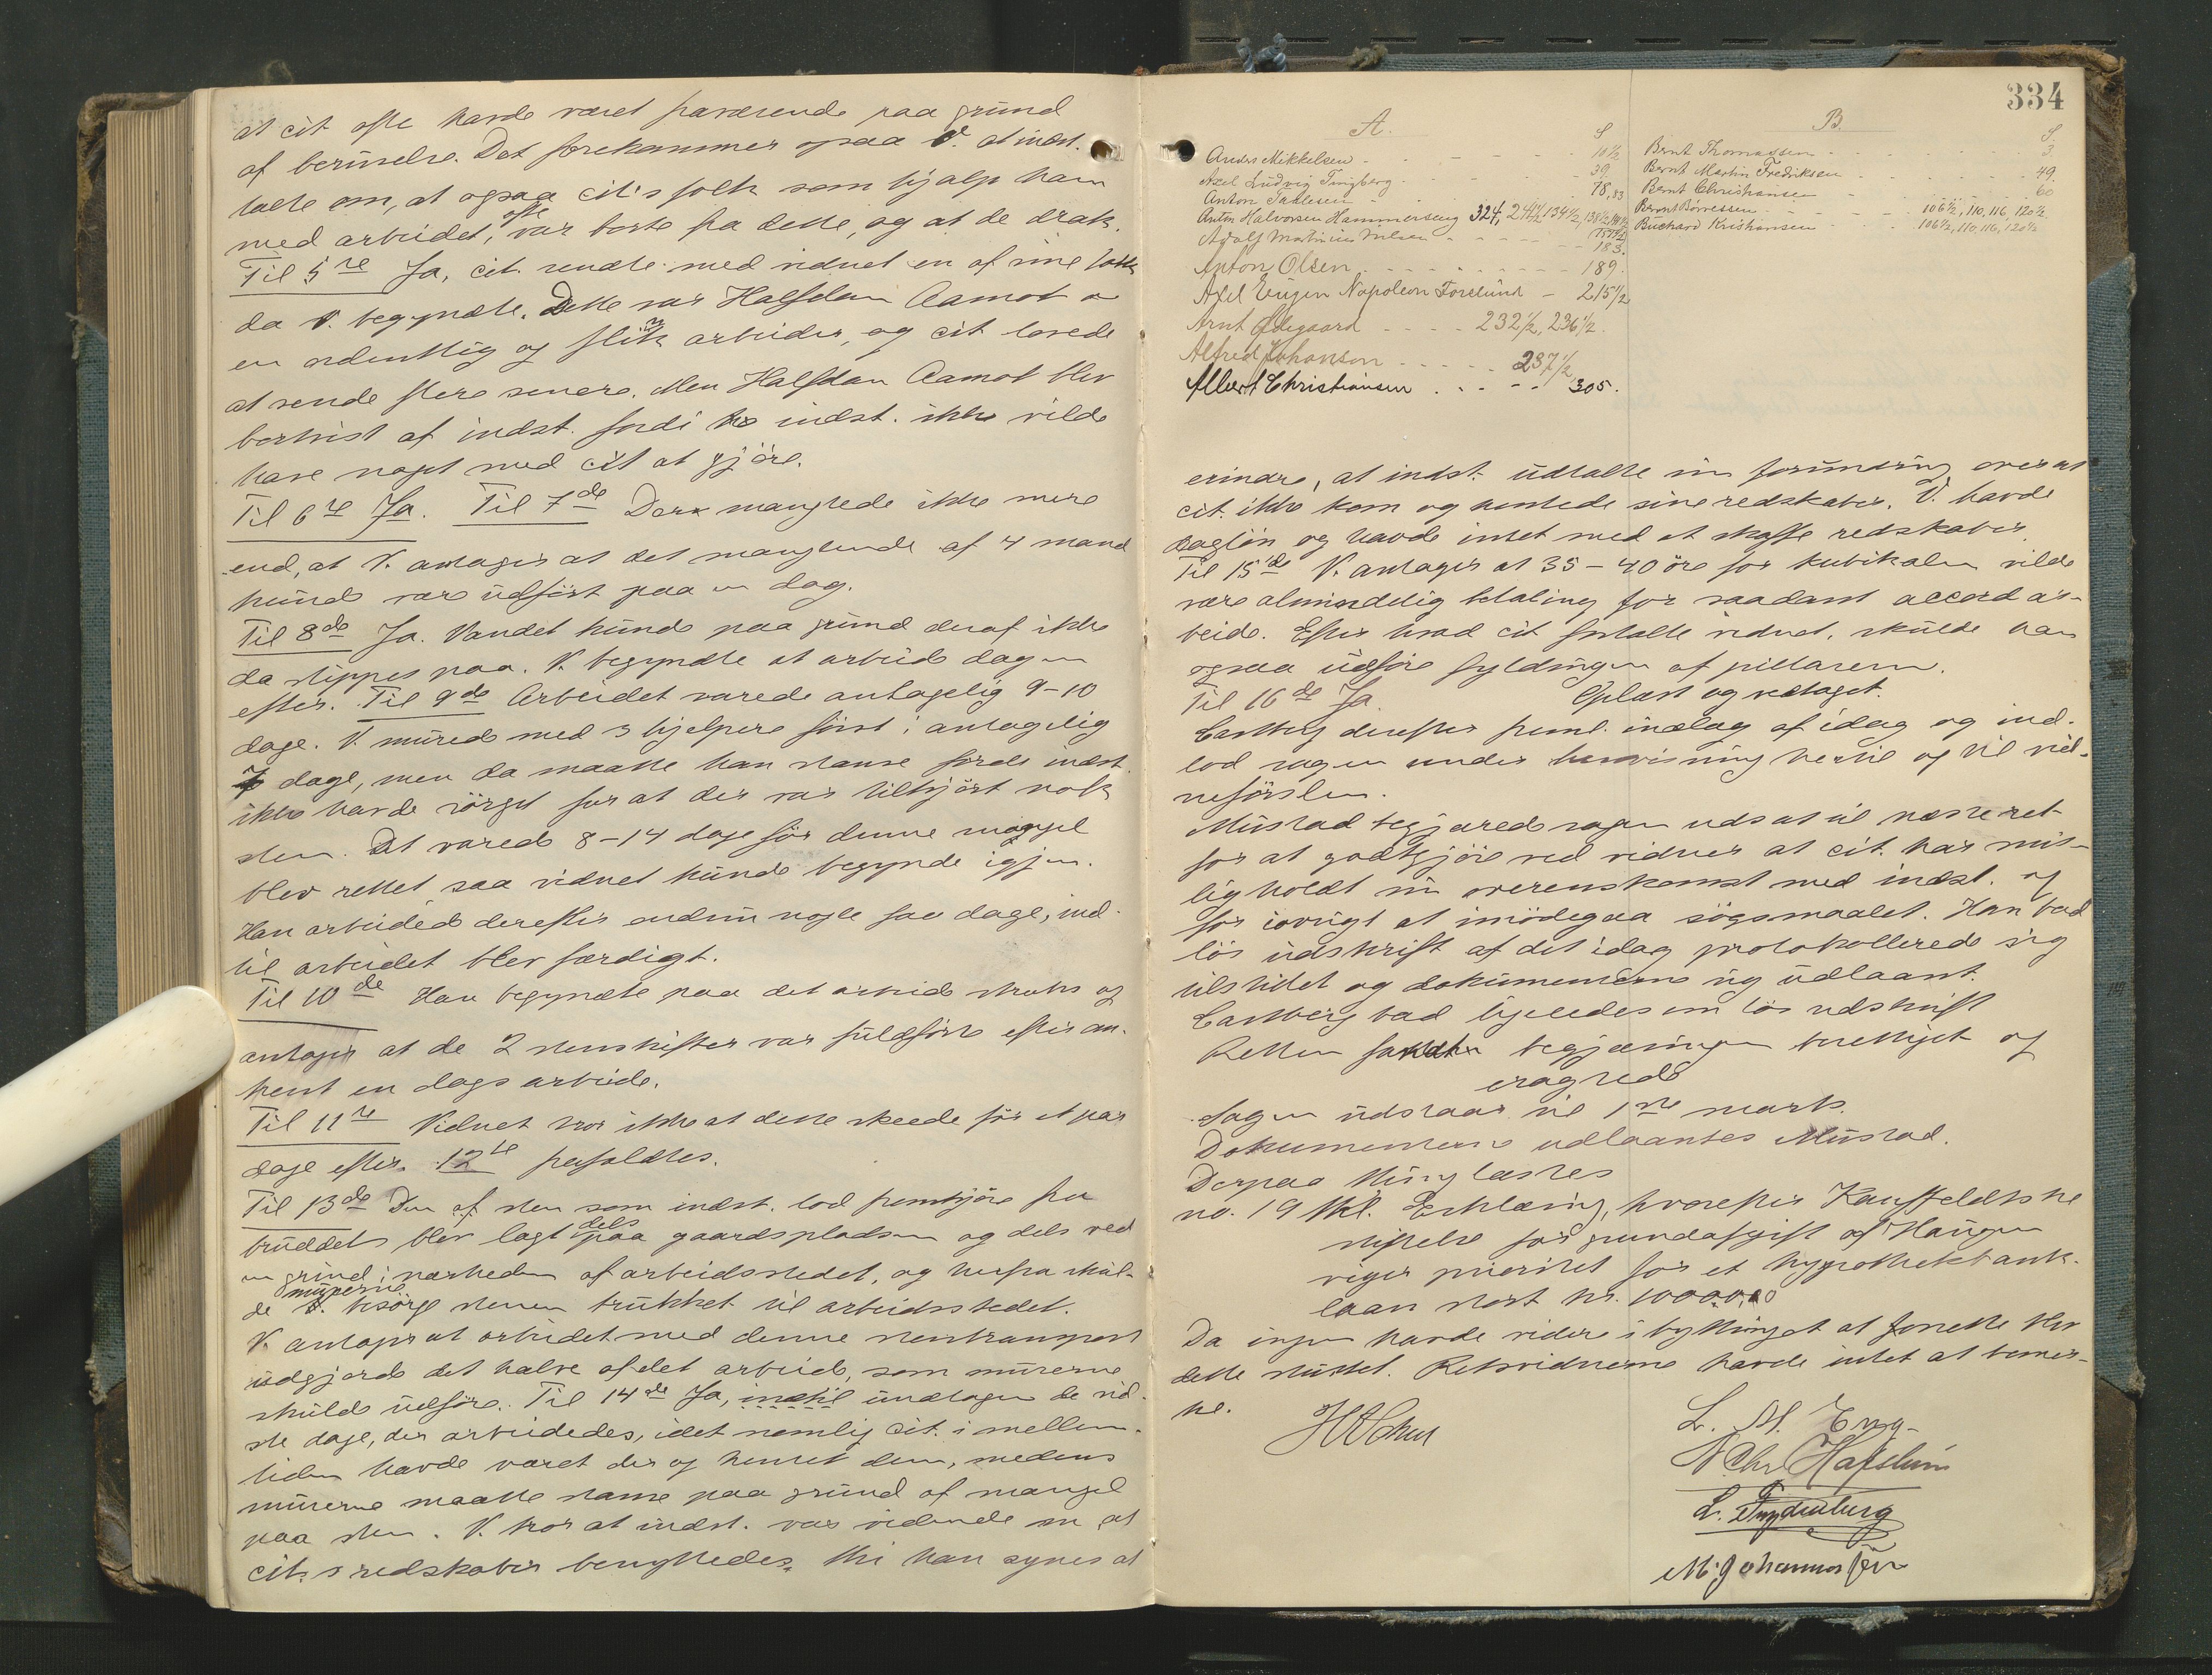 at cit. ofte havde været fraværende paa grund
af beruselse. Det forekommer ogsaa V. at indst.
talte om, at ogsaa cit's folk som hjalp ham
med arbeidet, ofte var borte fra dette, og at de drak.
Til 5te Ja, cit. sendte med vidnet en af sine folk
da V. begyndte. Dette var Halfdan Aamot
en ordentlig og flink arbeider, og cit lovede
at sende flere senere. Men Halfdan Aamot blev
bortvist af indst. fordi indst. ikke vilde
have noget med cit at gjöre.
Til 6te Ja. Til 7de Der manglede ikke mere
end, at V. antager at det manglende af 4 mand
kunde være udfört paa en dag.
Til 8de Ja. Vandet kunde paa grund deraf ikke
da slippes paa. V. begyndte at arbeide dagen
efter. Til 9de Arbeidet varede antagelig 9-10
dage. V. murede med 3 hjelpere först i antagelig
dage, men da maatte han stanse fordi indst.
ikke havde sörget for at der var tilkjört nok
sten. Det varede 8-14 dage för denne mangel
blev rettet saa vidnet kunde begynde igjen.
Han arbeidede derefter endnu nogle faa dage, ind-
til arbeidet blev færdigt.
Til 10de Han begyndte paa det arbeide straks og
antager at de 2 stenkister var fuldförte efter om-
trent en dags arbeide.
Til 11te Vidnet tror ikke at dette skeede för et par
dage efter. 12te frafaldtes.
Til 13de Den af sten som indst. lod fremkjöre fra
bruddet blev lagt dels paa gaardspladsen og dels ved
en grind i nærheden af arbeidsstedet, og herfra skul-
de murerne besörge stenen trukket til arbeidsstedet.
V. antager at arbeidet med denne stentransport
udgjorde det halve af det arbeide, som murerne
skulde udföre. Til 14de Ja, indtil undtagen de sid-
ste dage, der arbeidedes, idet nemlig cit. i mellem-
tiden havde været der og hentet dem, medens
murerne maatte stanse paa grund af mangel
paa sten. V. tror at indst. var vidende om at
cit.s redskaber benyttedes, thi han synes at
334
A.
S
Anders Mikkelsen - 10½
Axel Ludvig Tingberg - 39.
Anton Paulesen - 78, 83
Anton Halvorsen Hammerseng 324, 244½, 134½, 138½, 141½
Adolf Martinius Nilsen - 157½ 183.
Anton Olsen - 189.
Axel Eugen Napoleon Forslund - 215½
Arnt Ödegaard - 232½, 236½.
Alfred Johansen - 237½
Albert Christiansen - 305.
B.
S.
Bernt Thomassen - 3.
Bernt Martin Fredriksen - 49.
Bernt Christiansen - 60
Bernt Börressen - 106½, 110, 116, 120½.
Buchard Kristiansen - 106½, 110, 116, 120½
erindre, at indst. udtalte sin forundring over at
cit. ikke kom og hentede sine redskaber. V. havde
daglön og havde intet med at skaffe redskaber.
Til 15de V. antager at 35-40 öre for kubikalen vilde
være almindelig betaling for saadant accordar-
beide. Efter hvad cit fortalte vidnet, skulde han
ogsaa udföre fyldingen af pillarerne.
Til 16de Ja. Oplæst og vedtaget.
Castberg derefter freml. indlæg af idag og ind-
lod sagen under henvisning hertil og til vid-
neförslen.
Mustad begjærede sagen udsat til næste ret
for at godtgjöre ved vidner at cit. har mis-
ligholdt sin overenskomst med indst. og
for iövrigt at imödegaa sögsmaalet. Han bad
lös udskrift af det idag protokollerede sig
tilstillet og dokumenterne sig udlaant.
Castberg bad ligeledes om lös udskrift
Retten fandt begjæringen berettiget og
eragtede
Sagen udstaar til 1ste marts.
Dokumenterne udlaantes Mustad.
Derpaa thinglæstes
no. 19 Skl. Erklæring, hvorefter Kauffeldts he
stiftelse for grundafgift af Haugen
viger prioritet for et hypothekbank-
laan stort kr. 10000,00
Da ingen havde videre i bythinget at forrette blev
dette sluttet. Retsvidnerne havde intet at bemær-
ke.
L. M. Eng
N Chr Hafslun
L. Frydenberg
M. Johannesen